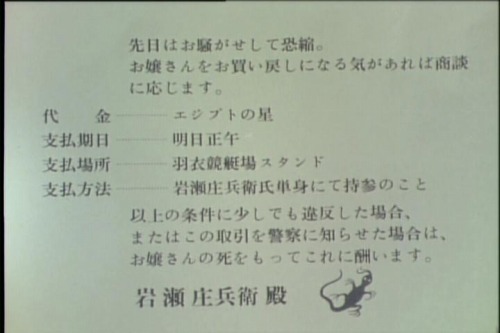 先日はお騒がせして恐縮。
お嬢さんをお買い戻しになる気があれば商談
に応じます。
代　　金————エジプトの星
支払期日————明日正午
支払場所————羽衣競艇場スタンド
支払方法————岩瀬庄兵衛氏単身にて持参のこと
以上の条件に少しでも違反した場合、
またはこの取引を警察に知らせた場合は、
お嬢さんの死をもってこれに酬います。
岩瀬庄兵衛殿